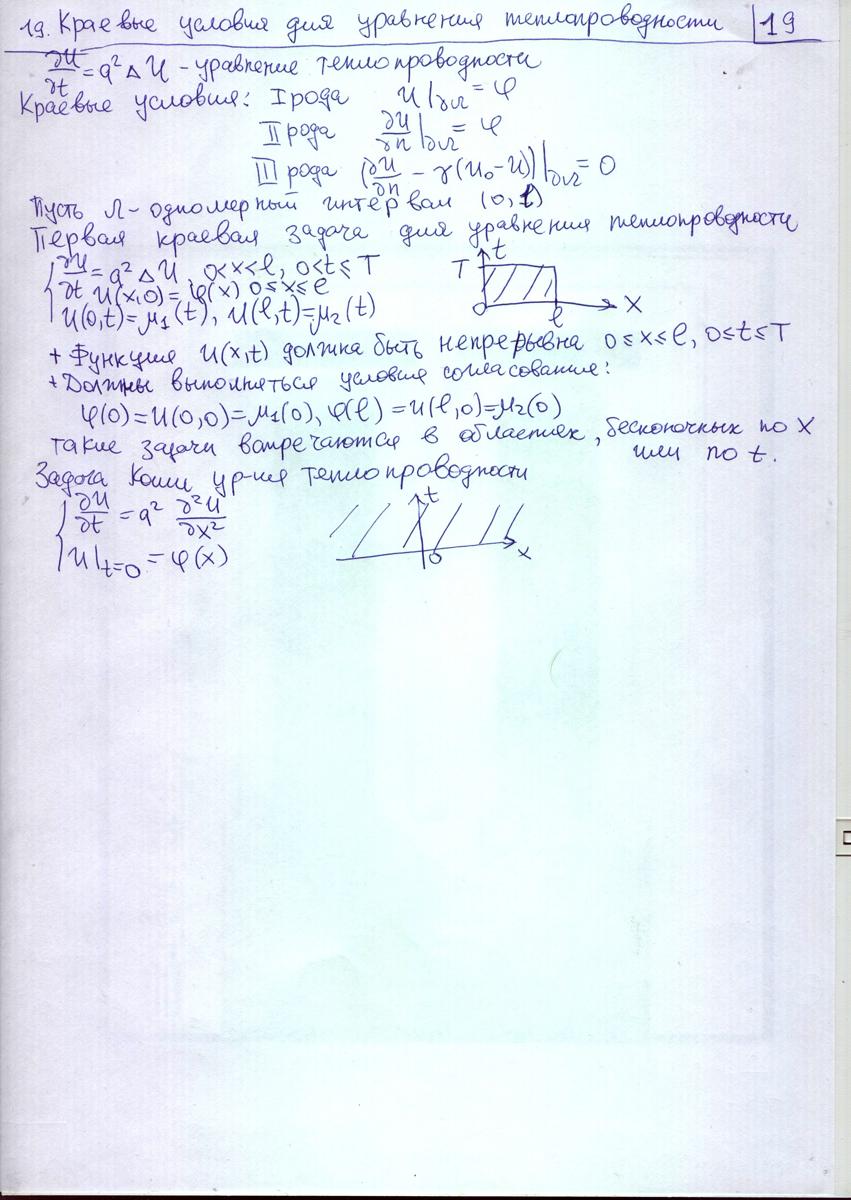 19. Краевые условия для уравнения теплопроводности | 19
∂U/∂t = a² Δ U - уравнение теплопроводности
Краевые условия: I рода U|∂Ω = φ
II рода ∂U/∂n|∂Ω = φ
III рода (∂U/∂n - γ(U₀-U))|∂Ω = 0
Пусть Ω - одномерный интервал (0, l)
Первая краевая задача для уравнения теплопроводности
∂U/∂t = a² Δ U 0<x<l, 0<t≤T
U(x,0) = φ(x) 0≤x≤l
U(0,t)=μ₁(t), U(l,t)=μ₂(t)
t
T
0
l
x
+ Функция U(x,t) должна быть непрерывна 0≤x≤l, 0≤t≤T
+ Должны выполняться условия согласования:
φ(0)=U(0,0)=μ₁(0), φ(l)=U(l,0)=μ₂(0)
такие задачи встречаются в областях, бесконечных по x
или по t.
Задача Коши ур-ия теплопроводности
∂U/∂t = a² ∂²U/∂x²
U|t=0 = φ(x)
t
0
x